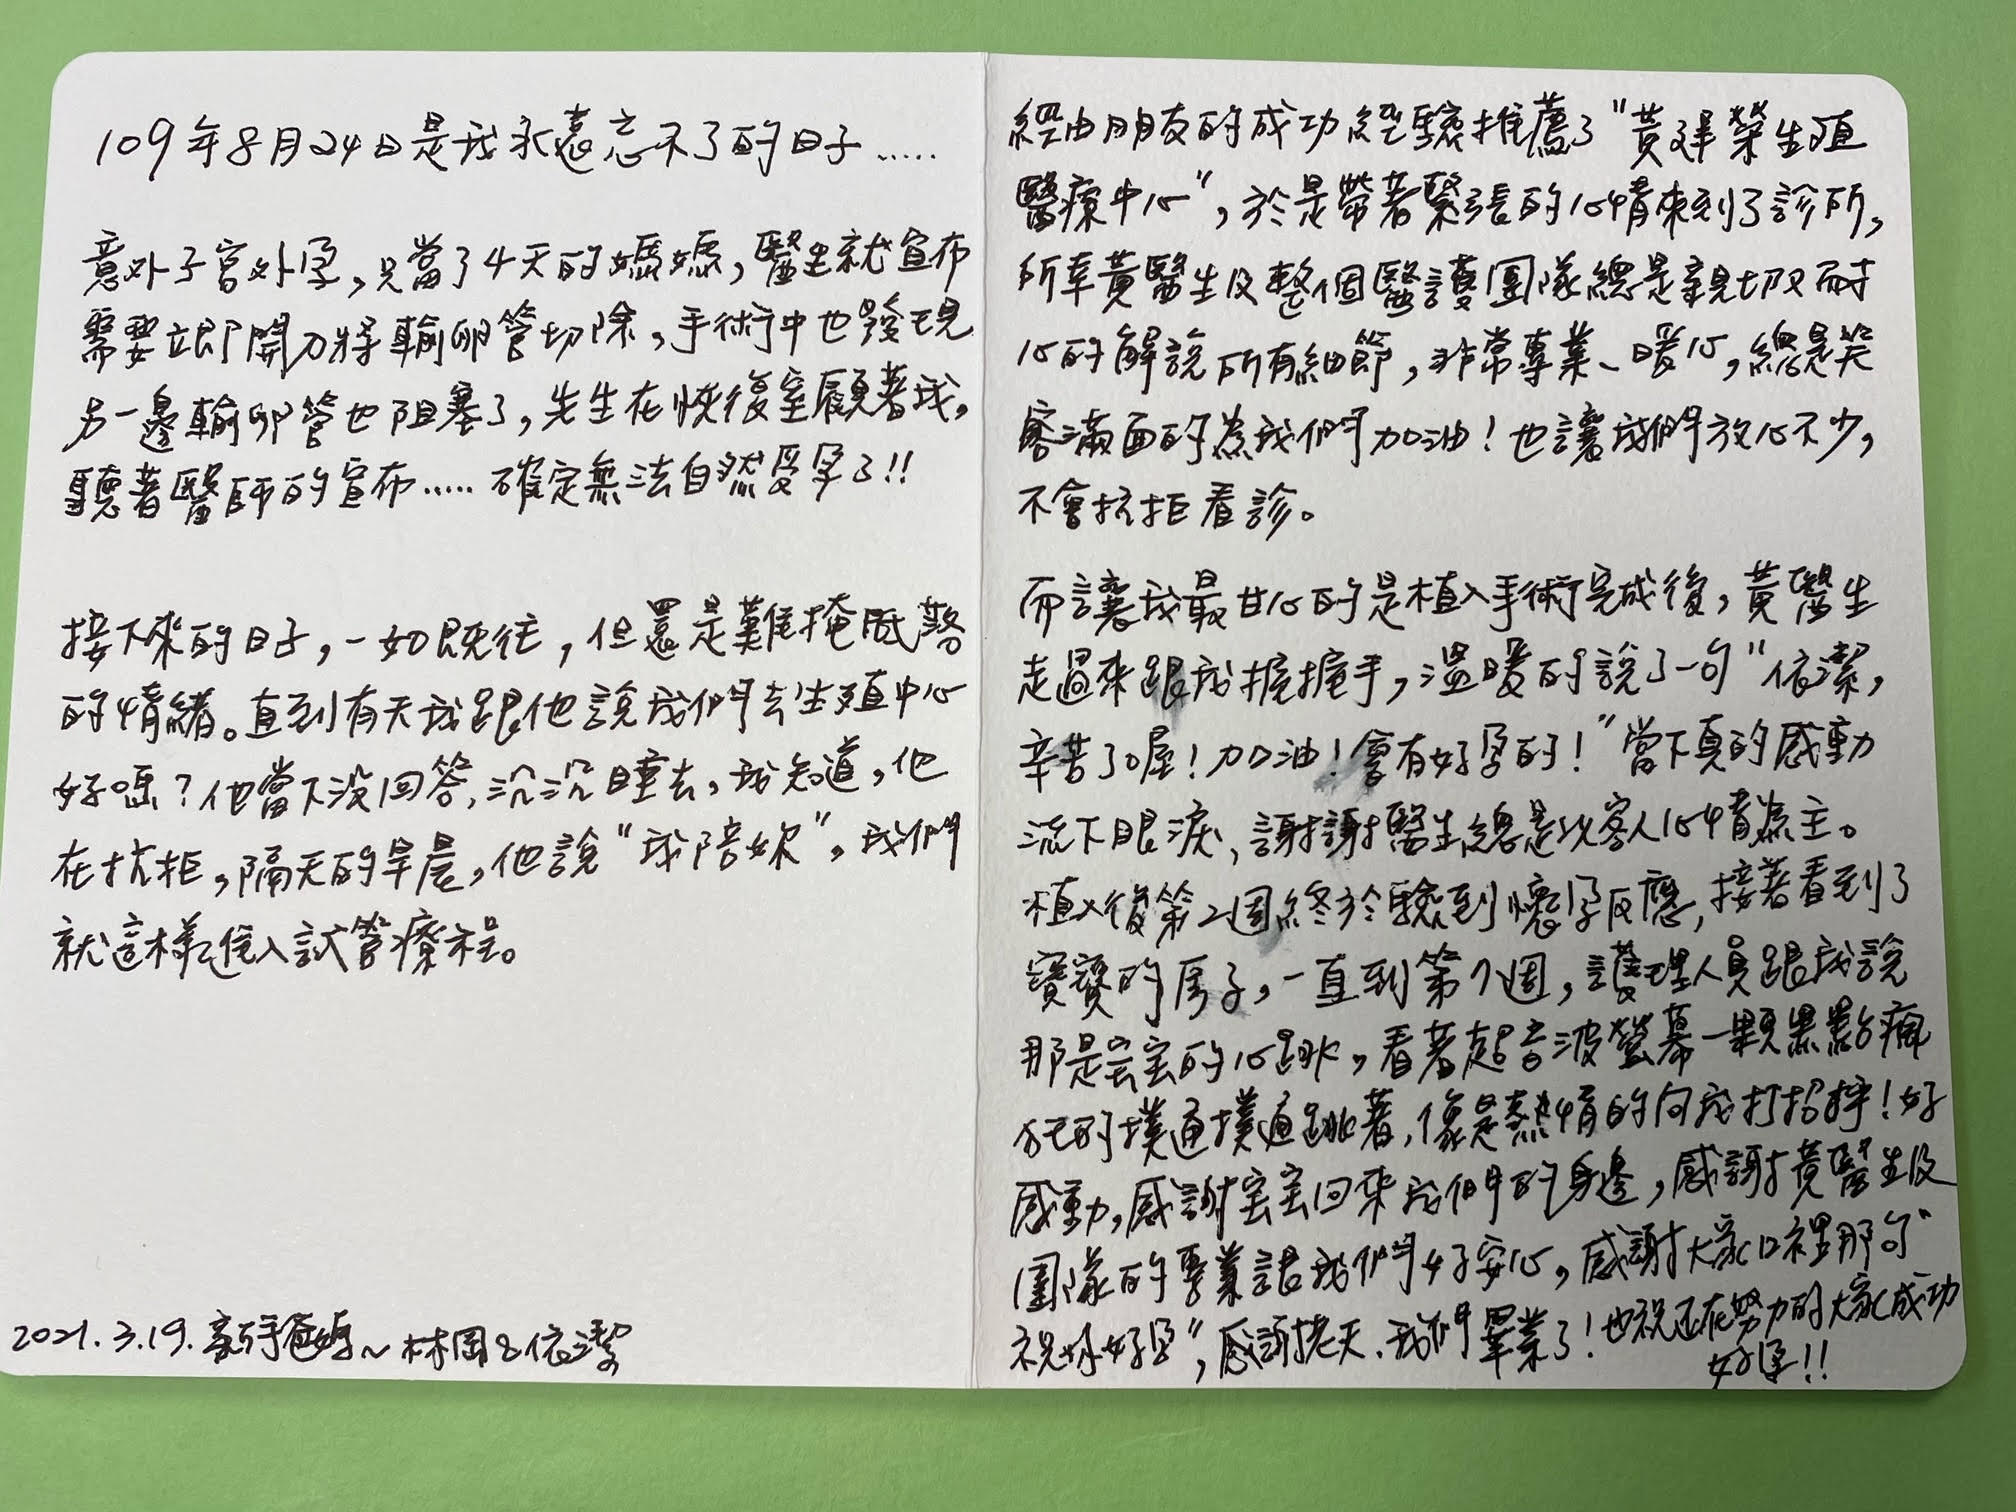 109年8月24日是我永遠忘不了的日子.....
意外子宮外孕,只當了4天的媽媽,醫生就宣布
需要立即開刀將輸卵管切除,手術中也發現
另一邊輸卵管也阻塞了,先生在恢復室顧著我,
聽著醫師的宣布.....確定無法自然受孕了!!
接下來的日子,一如既往,但還是難掩低落
的情緒。直到有天我跟他說我們去生殖中心
好嗎?他當下沒回答,沉沉睡去,我知道,他
在抗拒,隔天的早晨,他說"我陪妳",我們
就這樣進入試管療程。
2021.3.19. 爸媽~林岡&依潔
經由朋友的成功經驗推薦了"黃建榮生殖
醫療中心",於是帶著緊張的心情來到了診所,
所幸黃醫生及整個醫護團隊總是親切又耐
心的解說所有細節,非常專業、暖心,總是笑
容滿面的為我們加油!也讓我們放心不少,
不會抗拒看診。
而讓我最甘心的是植入手術完成後,黃醫生
走過來跟我握握手,溫暖的說了一句"依潔,
辛苦了喔!加油!會有好孕的!"當下真的感動
流下眼淚,謝謝醫生總是以客人心情為主。
植入後第2週終於驗到懷孕反應,接著看到了
寶寶的房子,一直到第7週,護理人員跟我說
那是宝宝的心跳,看著超音波螢幕一顆黑點瘋
狂的撲通撲通跳著,像是熱情的向我打招呼!好
感動,感謝宝宝回來我們的身邊,感謝黃醫生及
團隊的專業讓我們好安心,感謝大家口裡那句"
祝妳好孕",感謝老天、我們畢業了!也祝正在努力的大家成功
好孕!!